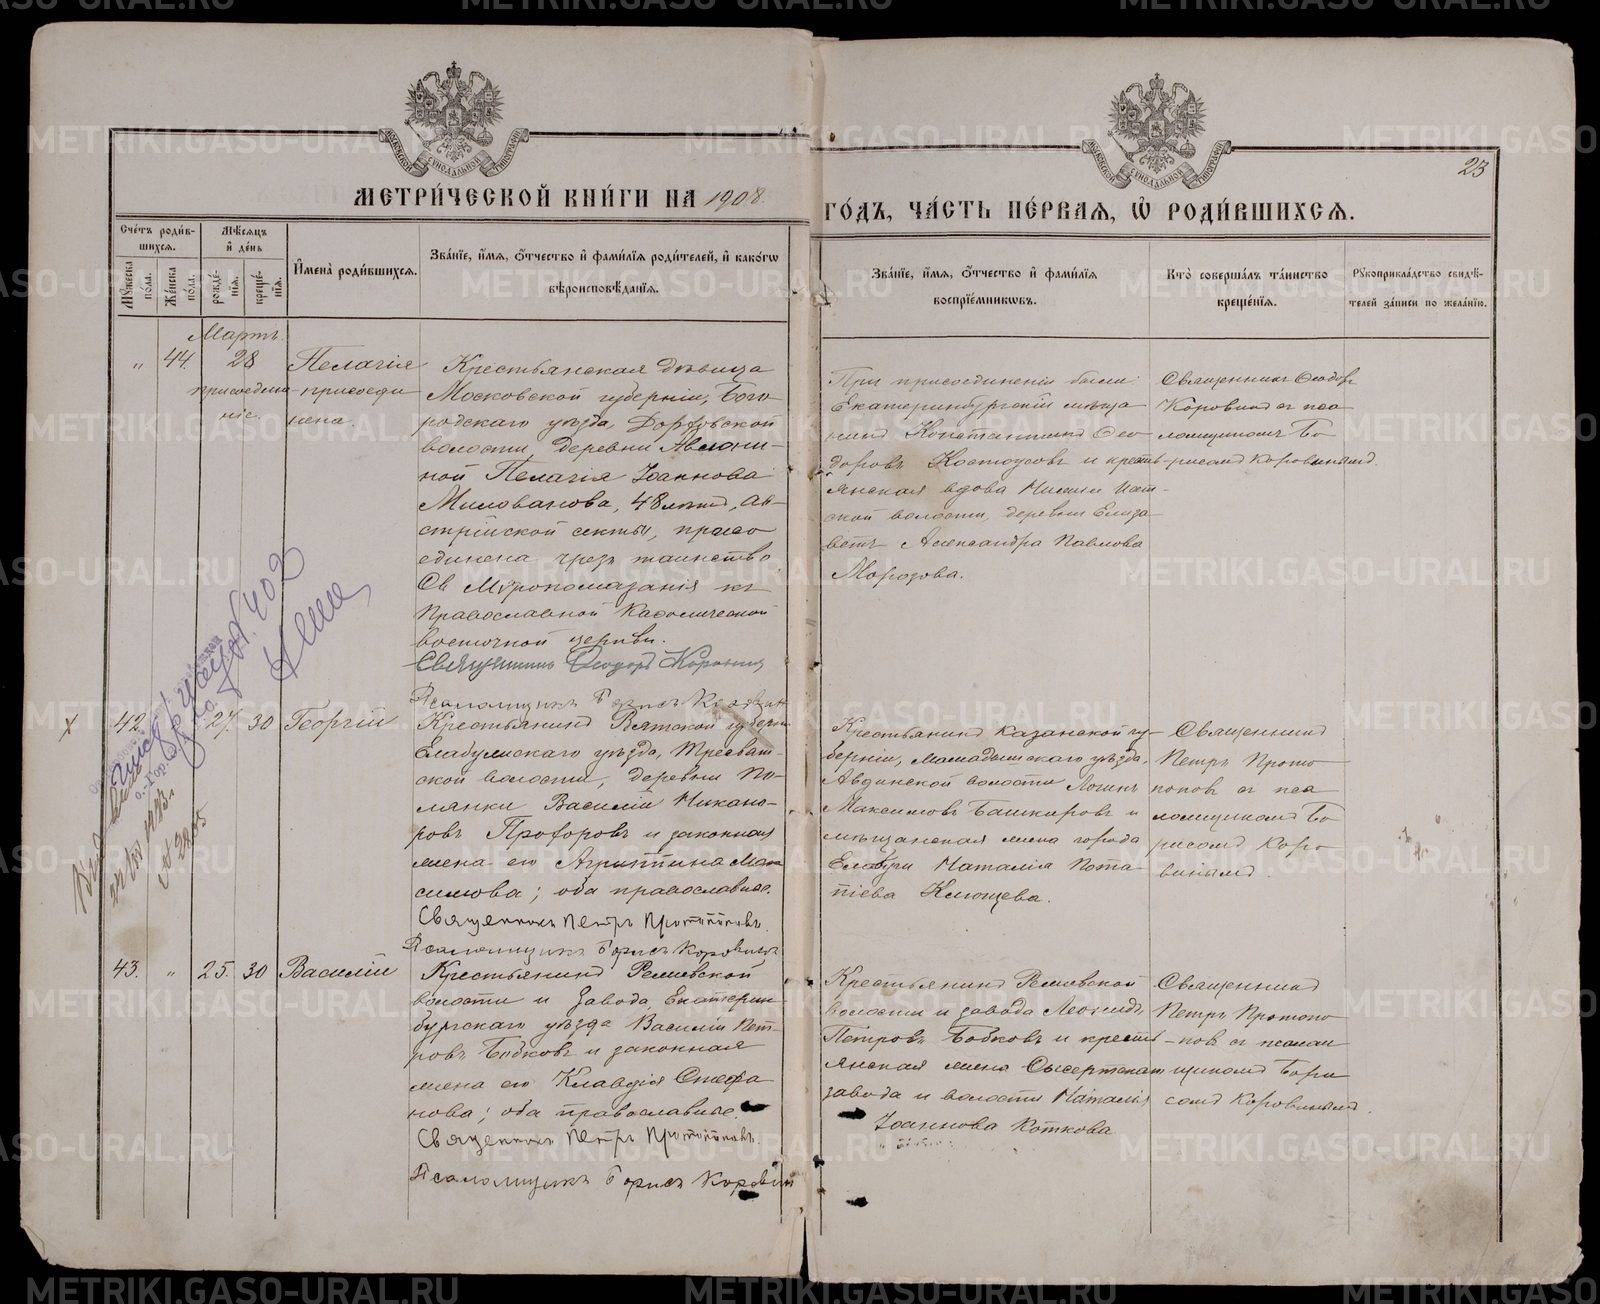 МЕТРИ́ЧЕСКОЙ КНИ́ГИ НА 1908.
ГО́ДЪ, ЧА́СТЬ ПЕ́РВАЯ, Ѡ РОДИ́ВШИХСЯ.
23
Сче́тъ роди́в-
шихся.
Мѣсяцъ
и де́нь
Му́жеска по́ла.
Же́нска по́ла.
рожде́-
нія.
креще́-
нія.
И́мена роди́вшихся.
Зва́ніе, и́мя, о́тчество и фами́лія роди́телей, и како́гѡ
вѣроисповѣ́данія.
Зва́ніе, и́мя, о́тчество и фами́лія
воспріе́мникѡвъ.
Кто̀ соверша́лъ та́инство
креще́нія.
Рукоприкла́дство свидѣ́-
телей за́писи по жела́нію.
Мартъ.
„ 44. 28 Пелагія
присоедине-
ніе.
присоеди
нена.
Крестьянская дѣвица
Московской губерніи, Бого-
родскаго уѣзда, Дорховской
волости, деревни Авсюни-
ной Пелагія Іоаннова
Милованова, 48 лѣтъ, ав-
стрійской секты, присо
единена чрезъ таинство
Св. Мѵропомазанія къ
Православной Каѳолической
восточной церкви.
Священникъ Ѳеодоръ Коровинъ
Псаломщикъ Борисъ Коровинъ
При присоединеніи были:
Екатеринбургскій мѣща
нинъ Константинъ Ѳео
доровъ Костоусовъ и кресть-
янская вдова Нижне Исет-
ской волости, деревни Елиза-
ветъ Александра Павлова
Морозова.
Священникъ Ѳеодоръ
Коровинъ съ пса
ломщикомъ Бо
рисомъ Коровинымъ.
42. „ 27. 30 Георгій
Крестьянинъ Вятской губерніи
Елабужскаго уѣзда, Тресвят-
ской волости, деревни По-
лянки Василій Никано-
ровъ Прохоровъ и законная
жена его Агриппина Мак
симова; оба православные.
Священникъ Петръ Протопоповъ.
Псаломщикъ Борисъ Коровинъ
Крестьянинъ Казанской гу-
берніи, Мамадышскаго уѣзда,
Авдинской волости Логинъ
Максимовъ Башкировъ и
мѣщанская жена города
Елабуги Наталія Пота-
піева Клющева.
Священникъ
Петръ Прото
поповъ съ пса
ломщикомъ Бо
рисомъ Коро
винымъ.
43. „ 25. 30 Василій
Крестьянинъ Режевской
волости и завода Екатерин-
бургскаго уѣзда Василій Пет-
ровъ Бобковъ и законная
жена его Клавдія Стефа
нова; оба православные.
Священникъ Петръ Протопоповъ.
Псаломщикъ Борисъ Коровинъ
Крестьянинъ Режевской
волости и завода Леонидъ
Петровъ Бобковъ и кресть-
янская жена Сысертскаго
завода и волости Наталія
Іоаннова Коткова
Священникъ
Петръ Протопо
повъ съ псалом
щикомъ Бори
сомъ Коровинымъ.
METRIKI.GASO-URAL.RU